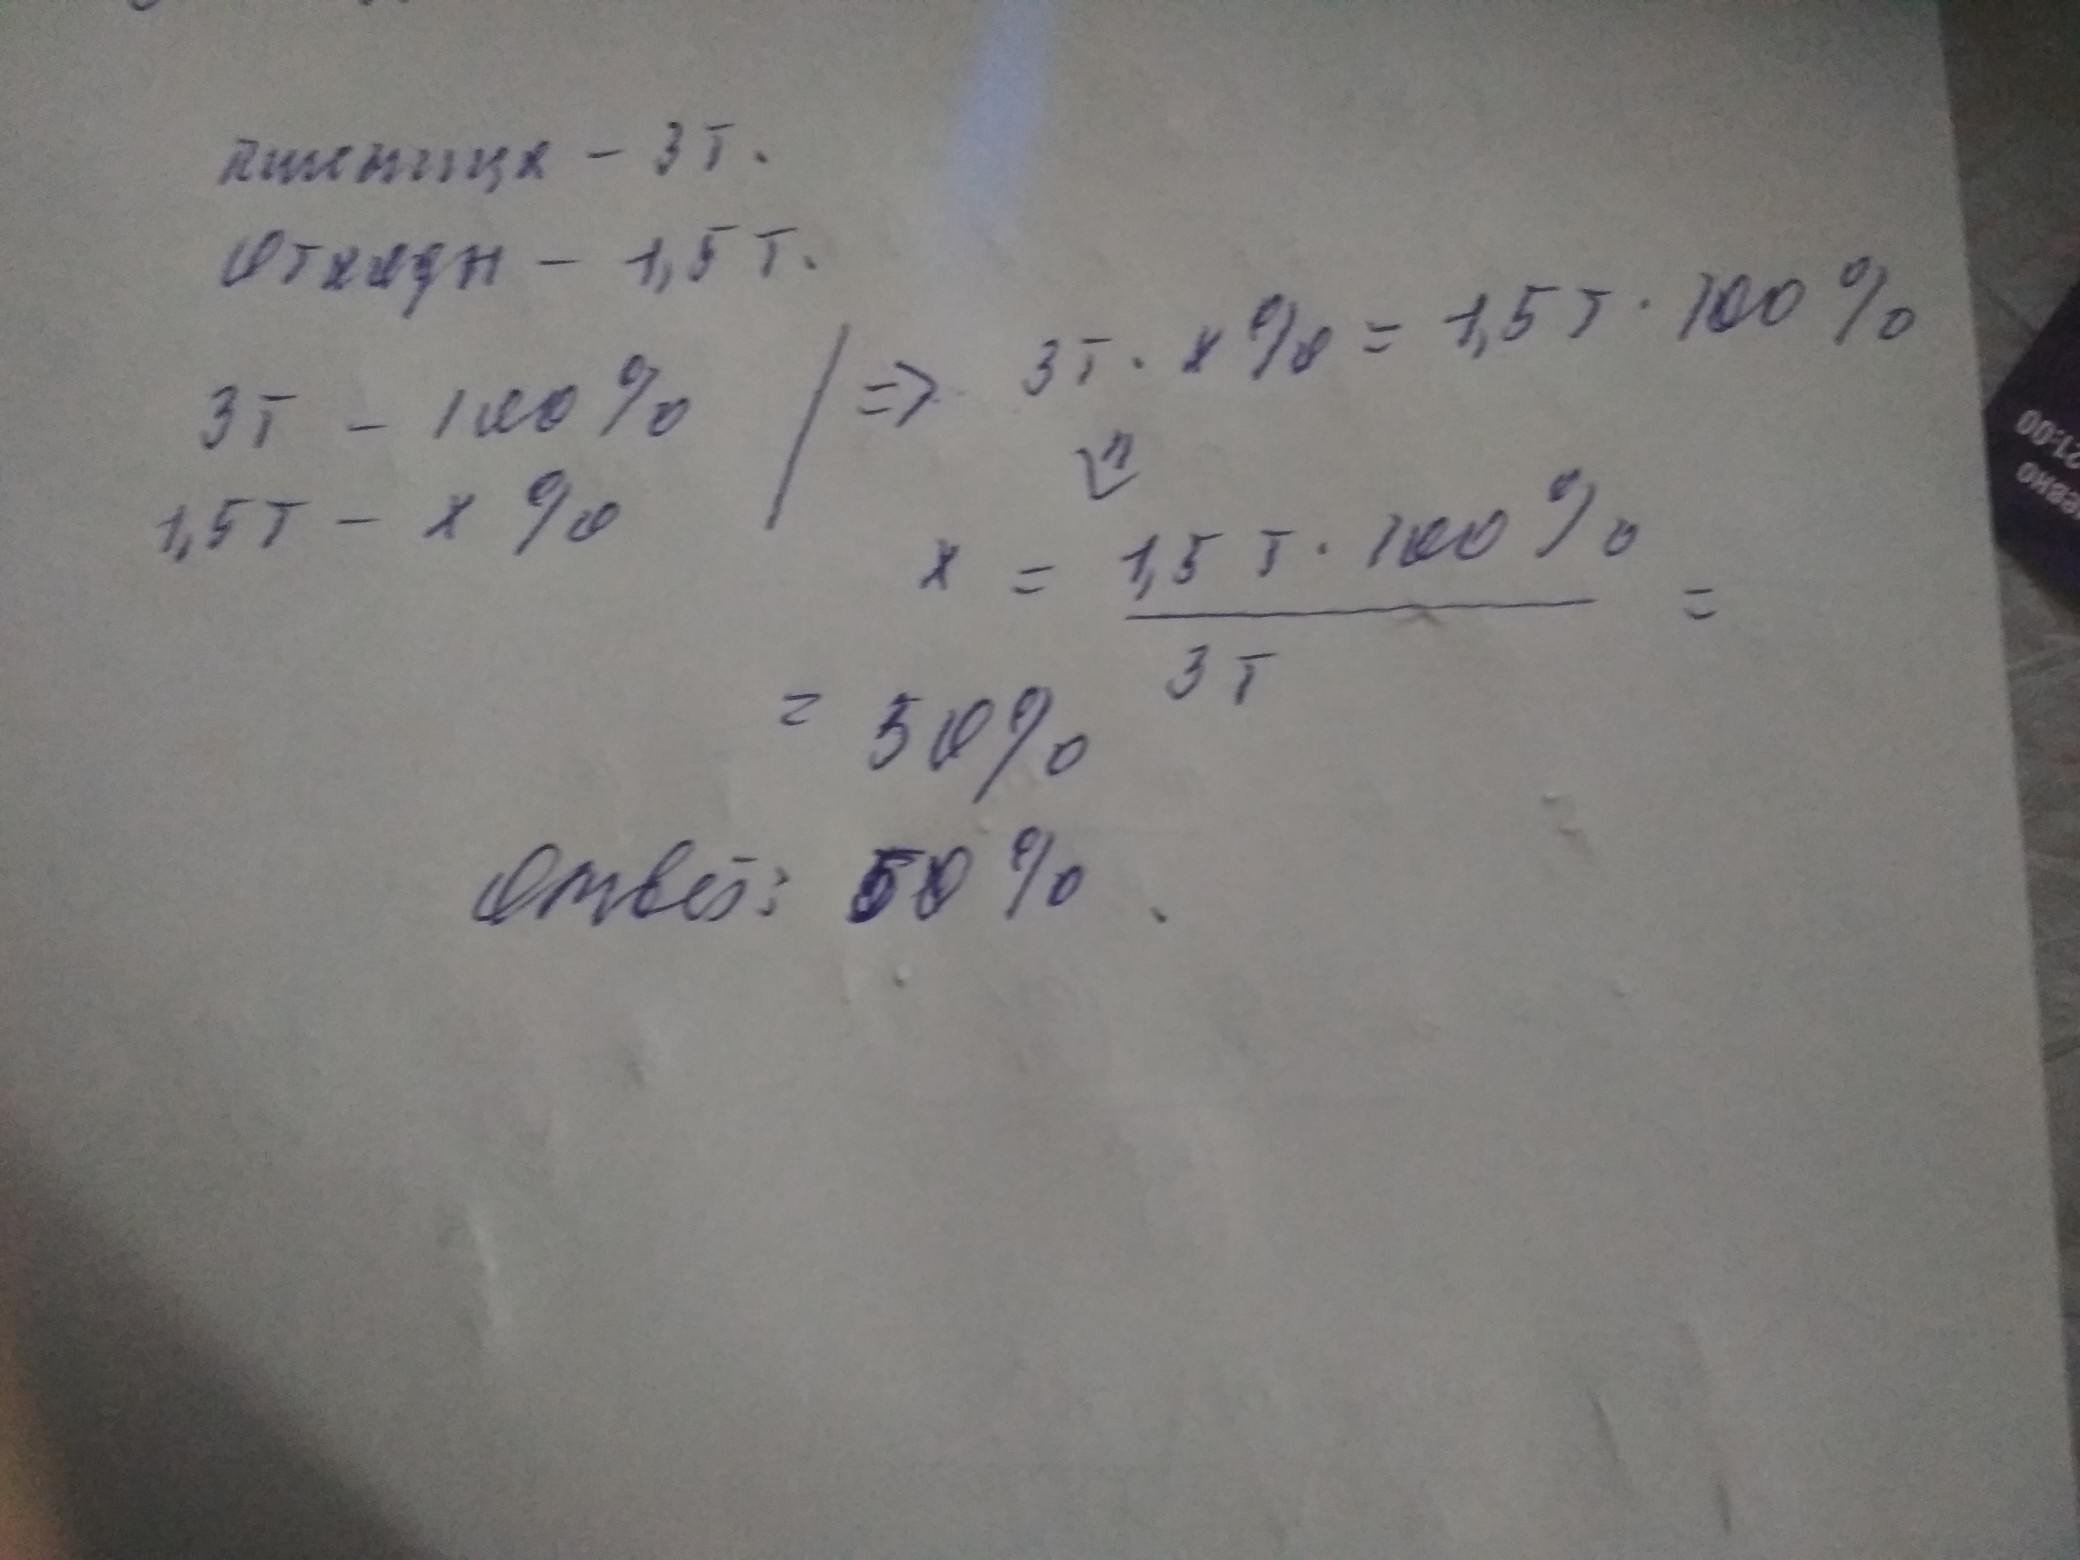 пшеница - 3т.
Отходы - 1,5 т.
3т - 100%
1,5т - х %
=> 3т · х% = 1,5 т · 100 %
=>
х = 1,5 т · 100 % / 3 т =
= 50%
Ответ: 50 % .
21:00